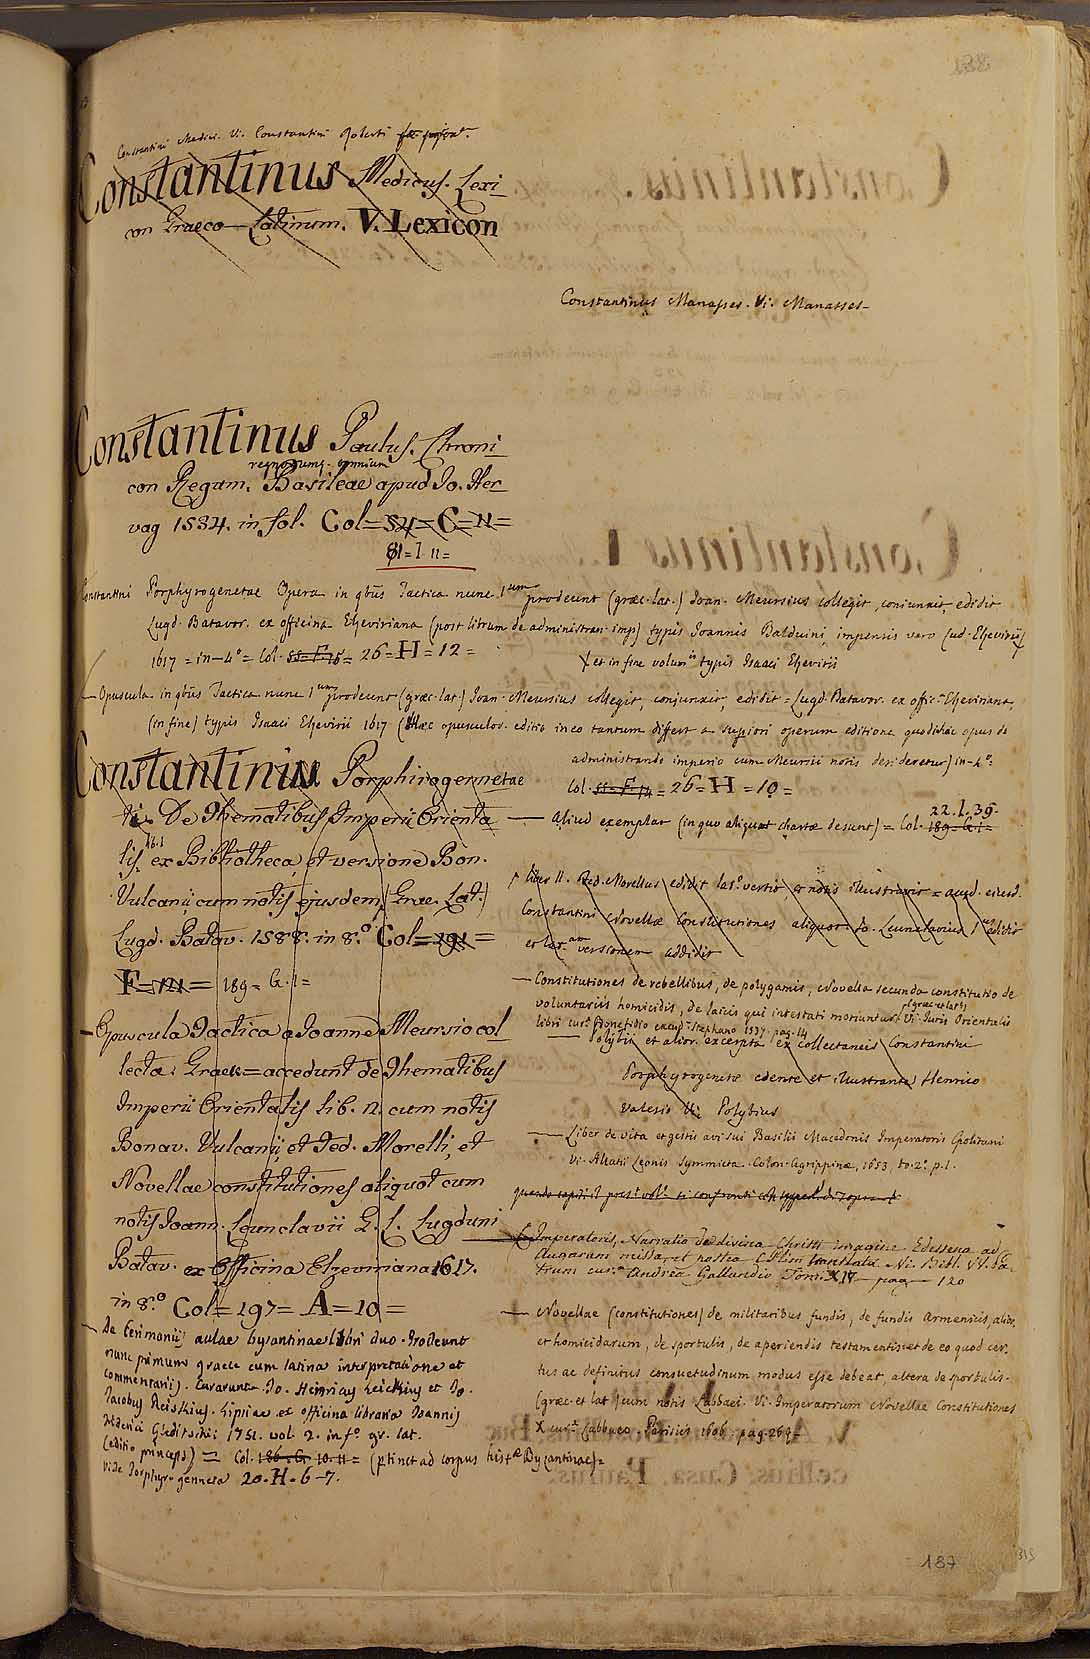 138
Constantini Medici. Vi. Constantini Roberti
Constantinus Medicus. Lexi-
con Graeco-Latinum. V. Lexicon
Constantinus Manasses. Vi. Manasses-
Constantinus Paulus. Chroni-
regnorumq. omnium
con Regum. Basileae apud Jo. Her-
vag 1534. in fol. Col=54=C=11=
81=I 11=
Constantini Porphyrogenetae Opera in qbus Tactica nunc 1um prodeunt (graec-lat.) Joan. Meursius collegit, coniunxit, edidit
Lugd. Batavor. ex officina Elzeviriana (post librum de administran. imp) typis Joannis Balduini, impensis vero Lud. Elzevirii
X et in fine volumis typis Isaaci Elzevirii
1617 = in-4° = Col. 55=F.15= 26=H=12=
Opuscula in qbus Tactica nunc 1um prodeunt (graec-lat.) Joan. Meursius collegit, conjunxit, edidit = Lugd. Batavor. ex offic. Elzeviriana,
(in fine) typis Isaaci Elzevirii 1617 (Haec opusculor. editio in eo tantum differt a supiori operum editione quod in hac opus de
administrando imperio cum Meursii notis desideretur) in-4°=
Col. 55=F.14=26=H=10=
Constantinus Porphirogennetae
De Thematibus Imperii Orienta-
lib. 1
lis, ex Bibliotheca, et versione Bon.
Vulcanii cum notis ejusdem (Grae. Lat.)
Lugd. Batav. 1588. in 8.° Col=191=
F=121= 189= G.1=
22.I.39.
— Aliud exemplar (in quo aliquae chartae desunt) = Col. 189=G.1=
liber II. Fed. Morellus edidit lat.e vertit, et notis illustravit = aucd. eiusd.
Constantini Novellae Constitutiones aliquot. Jo. Leunclavius 1us edidit
et lat.am versionem addidit
— Constitutiones de rebellibus, de polygamis, Novella secunda constitutio de
voluntariis homicidis, de laicis qui intestati moriuntur (graec et lat) Vi. Juris Orientalis
libri cur. Bonefidio excud. Stephano 1557. pag. 14
— Polybii et alior. excerpta ex collectaneis Constantini
Porphyrogenitae edente et illustrante Henrico
Valesio Vi. Polybius
— Opuscula Tactica a Joanne Meursio col
lecta: Graece = accedunt de Thematibus
Imperii Orientalis lib. II. cum notis
Bonav. Vulcanii, et Fed. Morelli, et
Novellae constitutiones aliquot cum
notis Joann. Leunclavii G. L. Lugduni
Batav. ex Officina Elzeviriana 1617.
in 8.° Col=197=A=10=
— Liber de vita et gestis avi sui Basilii Macedonis Imperatoris
Vi. Allatii Leonis Symmicta. Colon. Agrippinae, 1653, to. 2. p. 1.
Imperatoris, Narratio de divina Christi imagine Edessena ad
Augarum missa, et postea C.Plim translata. Vi. Bibl. VV. Pa-
trum cur.e Andrea Gallandio Tom. XIV— pag — 120
— Novellae (constitutiones) de militaribus fundis, de fundis Armeniis, alior.
et homicidarum, de sportulis, de aperiendis testamentis et de eo quod cer-
tus ac definitus consuetudinum modus esse debeat, altera de sportulis.
(graec. et lat.) cum notis Labbaei. Vi. Imperatorum Novellae Constitutiones
X cur.e Labbaeo. Parisiis 1606 pag. 269=
— De Cerimoniis aulae byzantinae libri duo. Prodeunt
nunc primum graece cum latina interpretatione et
commentariis. Curarunt Jo. Henricus Leichius et Jo.
Jacobus Reiskius. Lipsiae ex officina libraria Joannis
Federici Gleditschii 1751. vol. 2. in f.° gr. lat.
(editio princeps) = Col. 186.G. 10.11= (ptinet ad corpus histae Byzantinae)=
Vide Porphyrogenneta 20.H.6-7.
187
315